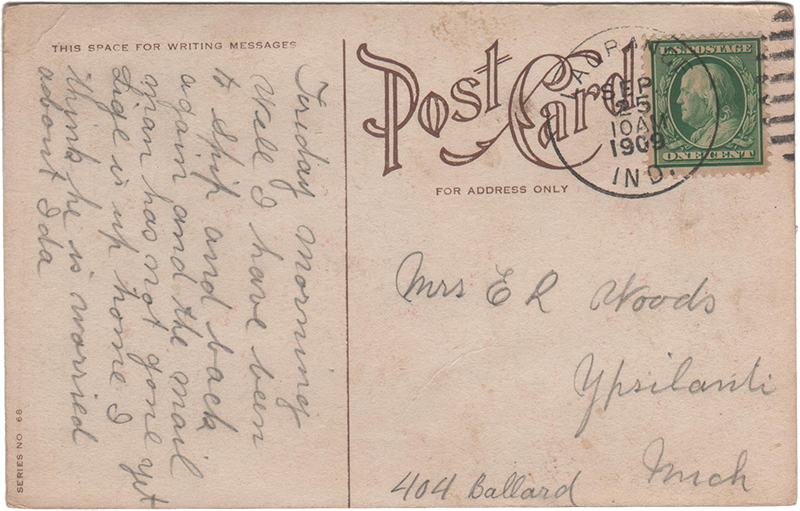 THIS SPACE FOR WRITING MESSAGES
Friday morning
Well I have been
to Spip and back
again and the mail
man has not gone yet
Lige is up home I
think he is worried
about Ida
SERIES NO 68
Post Card
FOR ADDRESS ONLY
SEP
25
10 AM
1909
IND.
U.S. POSTAGE
ONE CENT
Mrs E R Woods
Ypsilanti
Mich
404 Ballard